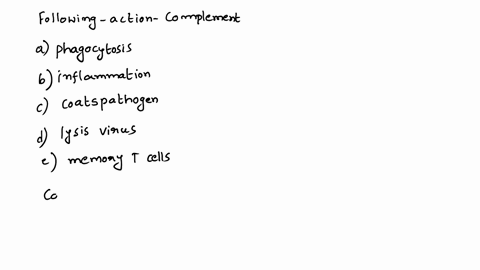 Following-action-Complement
a) phagocytosis
b) inflammation
c) coatspathogen
d) lysis virus
e) memory T cells
Co